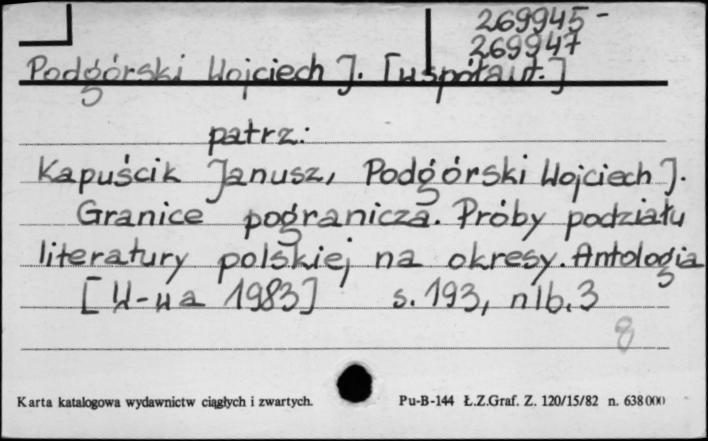 269945-
269947
Podgórski Wojciech J. [współaut.]
patrz:
Kapuścik Janusz, Podgórski Wojciech J.
Granice pogranicza. Próby podziału
literatury polskiej na okresy. Antologia
[W-wa 1983] s. 193, nlb. 3
8
Karta katalogowa wydawnictw ciągłych i zwartych. Pu-B-144 Ł.Z.Graf. Z. 120/15/82 n. 638000